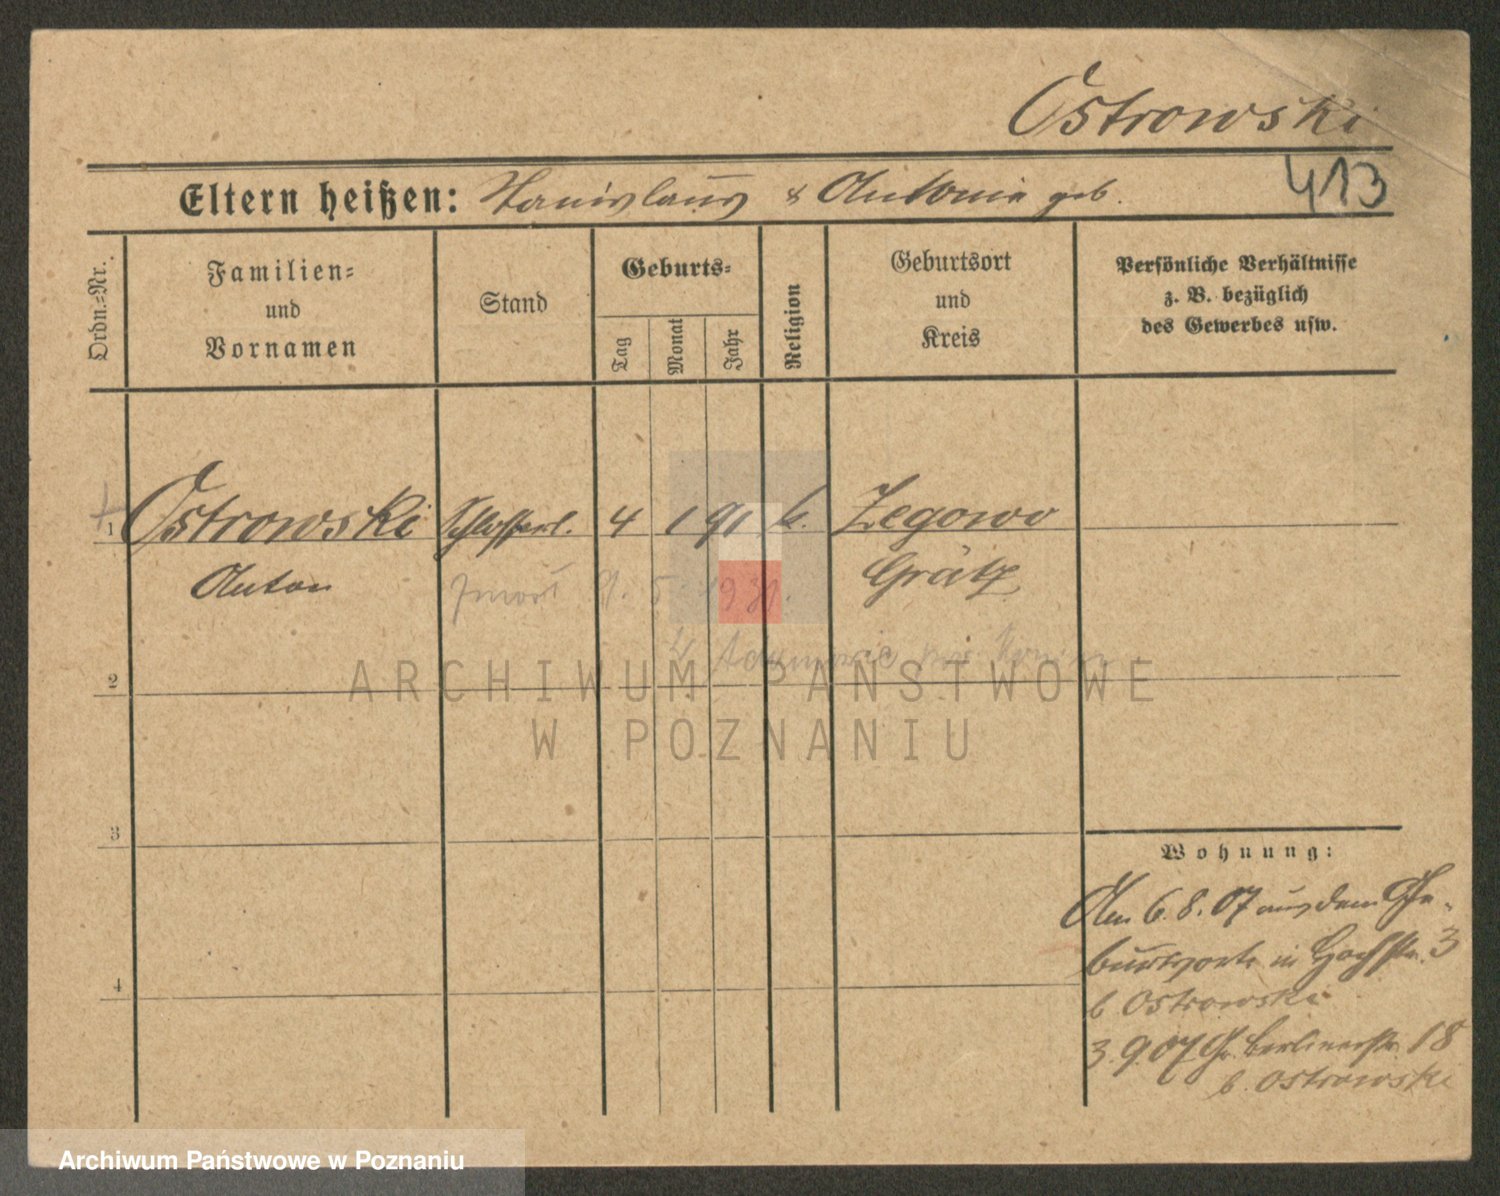 Ostrowski
413
Eltern heißen: Stanislaus & Antonie geb.
Ordn.=Nr.
Familien=
und
Vornamen
Stand
Geburts=
Tag
Monat
Jahr
Religion
Geburtsort
und
Kreis
Persönliche Verhältnisse
z. B. bezüglich
des Gewerbes usw.
1 Ostrowski Schlosserl. 4 1 91 k. Zegowo
Anton Grätz
9. 5. 1931.
2
3
4
Wohnung:
Am 6.8.07 aus dem Ge-
burtsorte in Hochstr. 3
b Ostrowski
3.9.07 Gr. Berlinerstr. 18
b. Ostrowski
ARCHIWUM PAŃSTWOWE
W POZNANIU
Archiwum Państwowe w Poznaniu